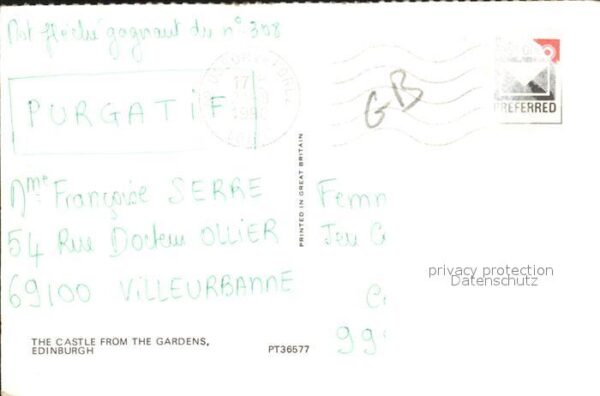 Mot fléché gagnant du n° 308
PURGATIF
GB
PREFERRED
Mme Françoise SERRE
54 Rue Docteur OLLIER
69100 VILLEURBANNE
PRINTED IN GREAT BRITAIN
Femm
Jeu C
99
privacy protection
Datenschutz
THE CASTLE FROM THE GARDENS,
EDINBURGH
PT36577